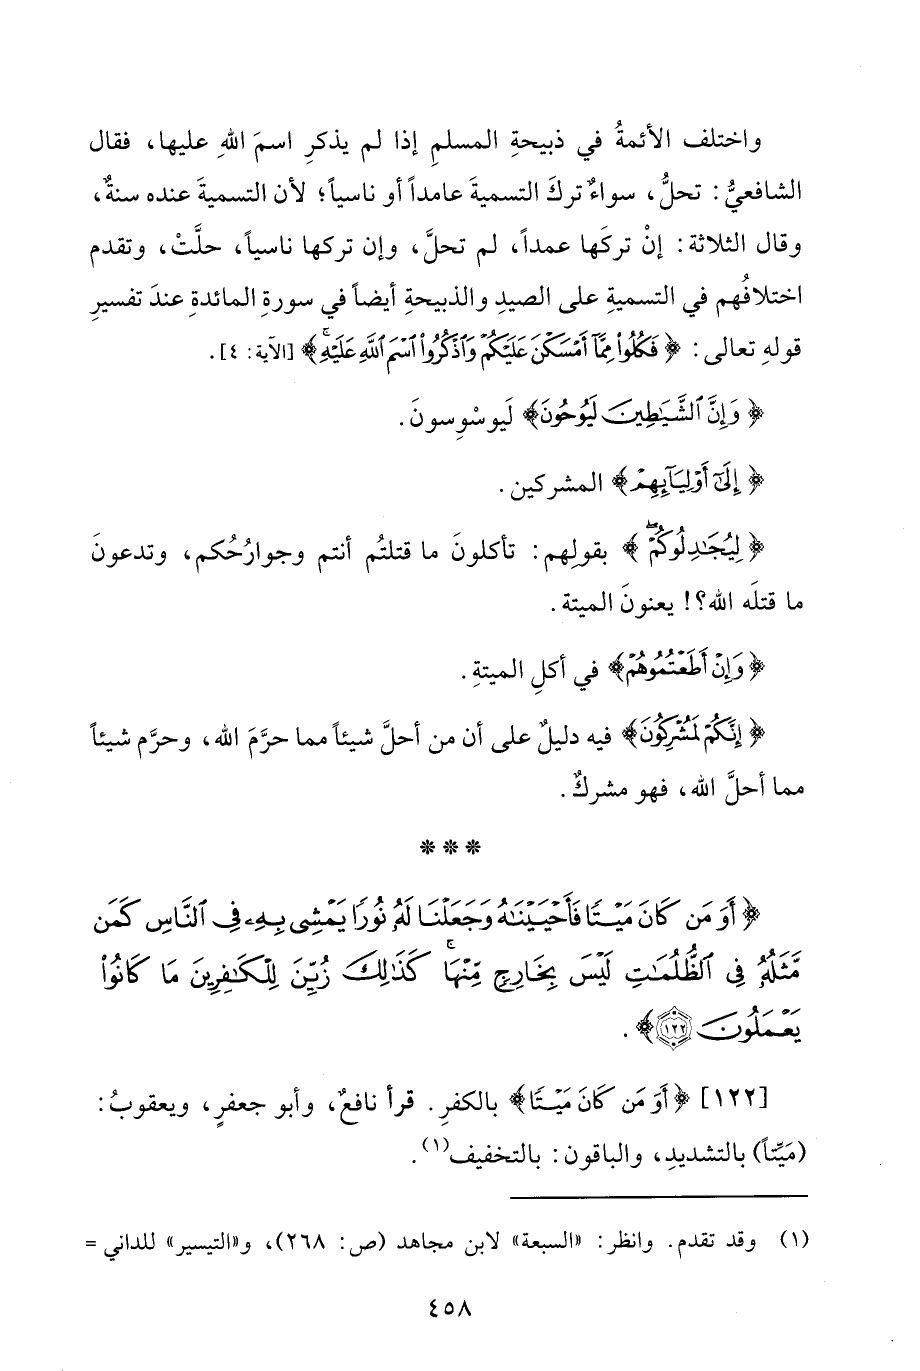 واختلف الأئمةُ في ذبيحةِ المسلمِ إذا لم يذكرِ اسمَ اللهِ عليها، فقال
الشافعيُّ: تحلُّ، سواءٌ تركَ التسميةَ عامداً أو ناسياً؛ لأن التسميةَ عنده سنةٌ،
وقال الثلاثة: إنْ تركَها عمداً، لم تحلَّ، وإن تركها ناسياً، حلَّتْ، وتقدم
اختلافُهم في التسميةِ على الصيدِ والذبيحةِ أيضاً في سورةِ المائدةِ عندَ تفسيرِ
قولهِ تعالى: ﴿فَكُلُوا۟ مِمَّآ أَمْسَكْنَ عَلَيْكُمْ وَٱذْكُرُوا۟ ٱسْمَ ٱللَّهِ عَلَيْهِ ۚ﴾ [الآية: ٤].
﴿وَإِنَّ ٱلشَّيَٰطِينَ لَيُوحُونَ﴾ لَيوسْوِسونَ.
﴿إِلَىٰٓ أَوْلِيَآئِهِمْ﴾ المشركين.
﴿لِيُجَٰدِلُوكُمْ ۖ﴾ بقولِهم: تأكلونَ ما قتلتُم أنتم وجوارُحُكم، وتدعونَ
ما قتلَه الله؟! يعنونَ الميتة.
﴿وَإِنْ أَطَعْتُمُوهُمْ﴾ في أكلِ الميتةِ.
﴿إِنَّكُمْ لَمُشْرِكُونَ﴾ فيه دليلٌ على أن من أحلَّ شيئاً مما حرَّمَ الله، وحرَّم شيئاً
مما أحلَّ الله، فهو مشركٌ.
* * *
﴿أَوَ مَن كَانَ مَيْتًا فَأَحْيَيْنَٰهُ وَجَعَلْنَا لَهُۥ نُورًا يَمْشِى بِهِۦ فِى ٱلنَّاسِ كَمَن
مَّثَلُهُۥ فِى ٱلظُّلُمَٰتِ لَيْسَ بِخَارِجٍ مِّنْهَا ۚ كَذَٰلِكَ زُيِّنَ لِلْكَٰفِرِينَ مَا كَانُوا۟
يَعْمَلُونَ ١٢٢﴾.
[١٢٢] ﴿أَوَ مَن كَانَ مَيْتًا﴾ بالكفرِ. قرأ نافعٌ، وأبو جعفرٍ، ويعقوبُ:
(مَيِّتاً) بالتشديدِ، والباقون: بالتخفيف(١).
(١) وقد تقدم. وانظر: «السبعة» لابن مجاهد (ص: ٢٦٨)، و«التيسير» للداني =
٤٥٨